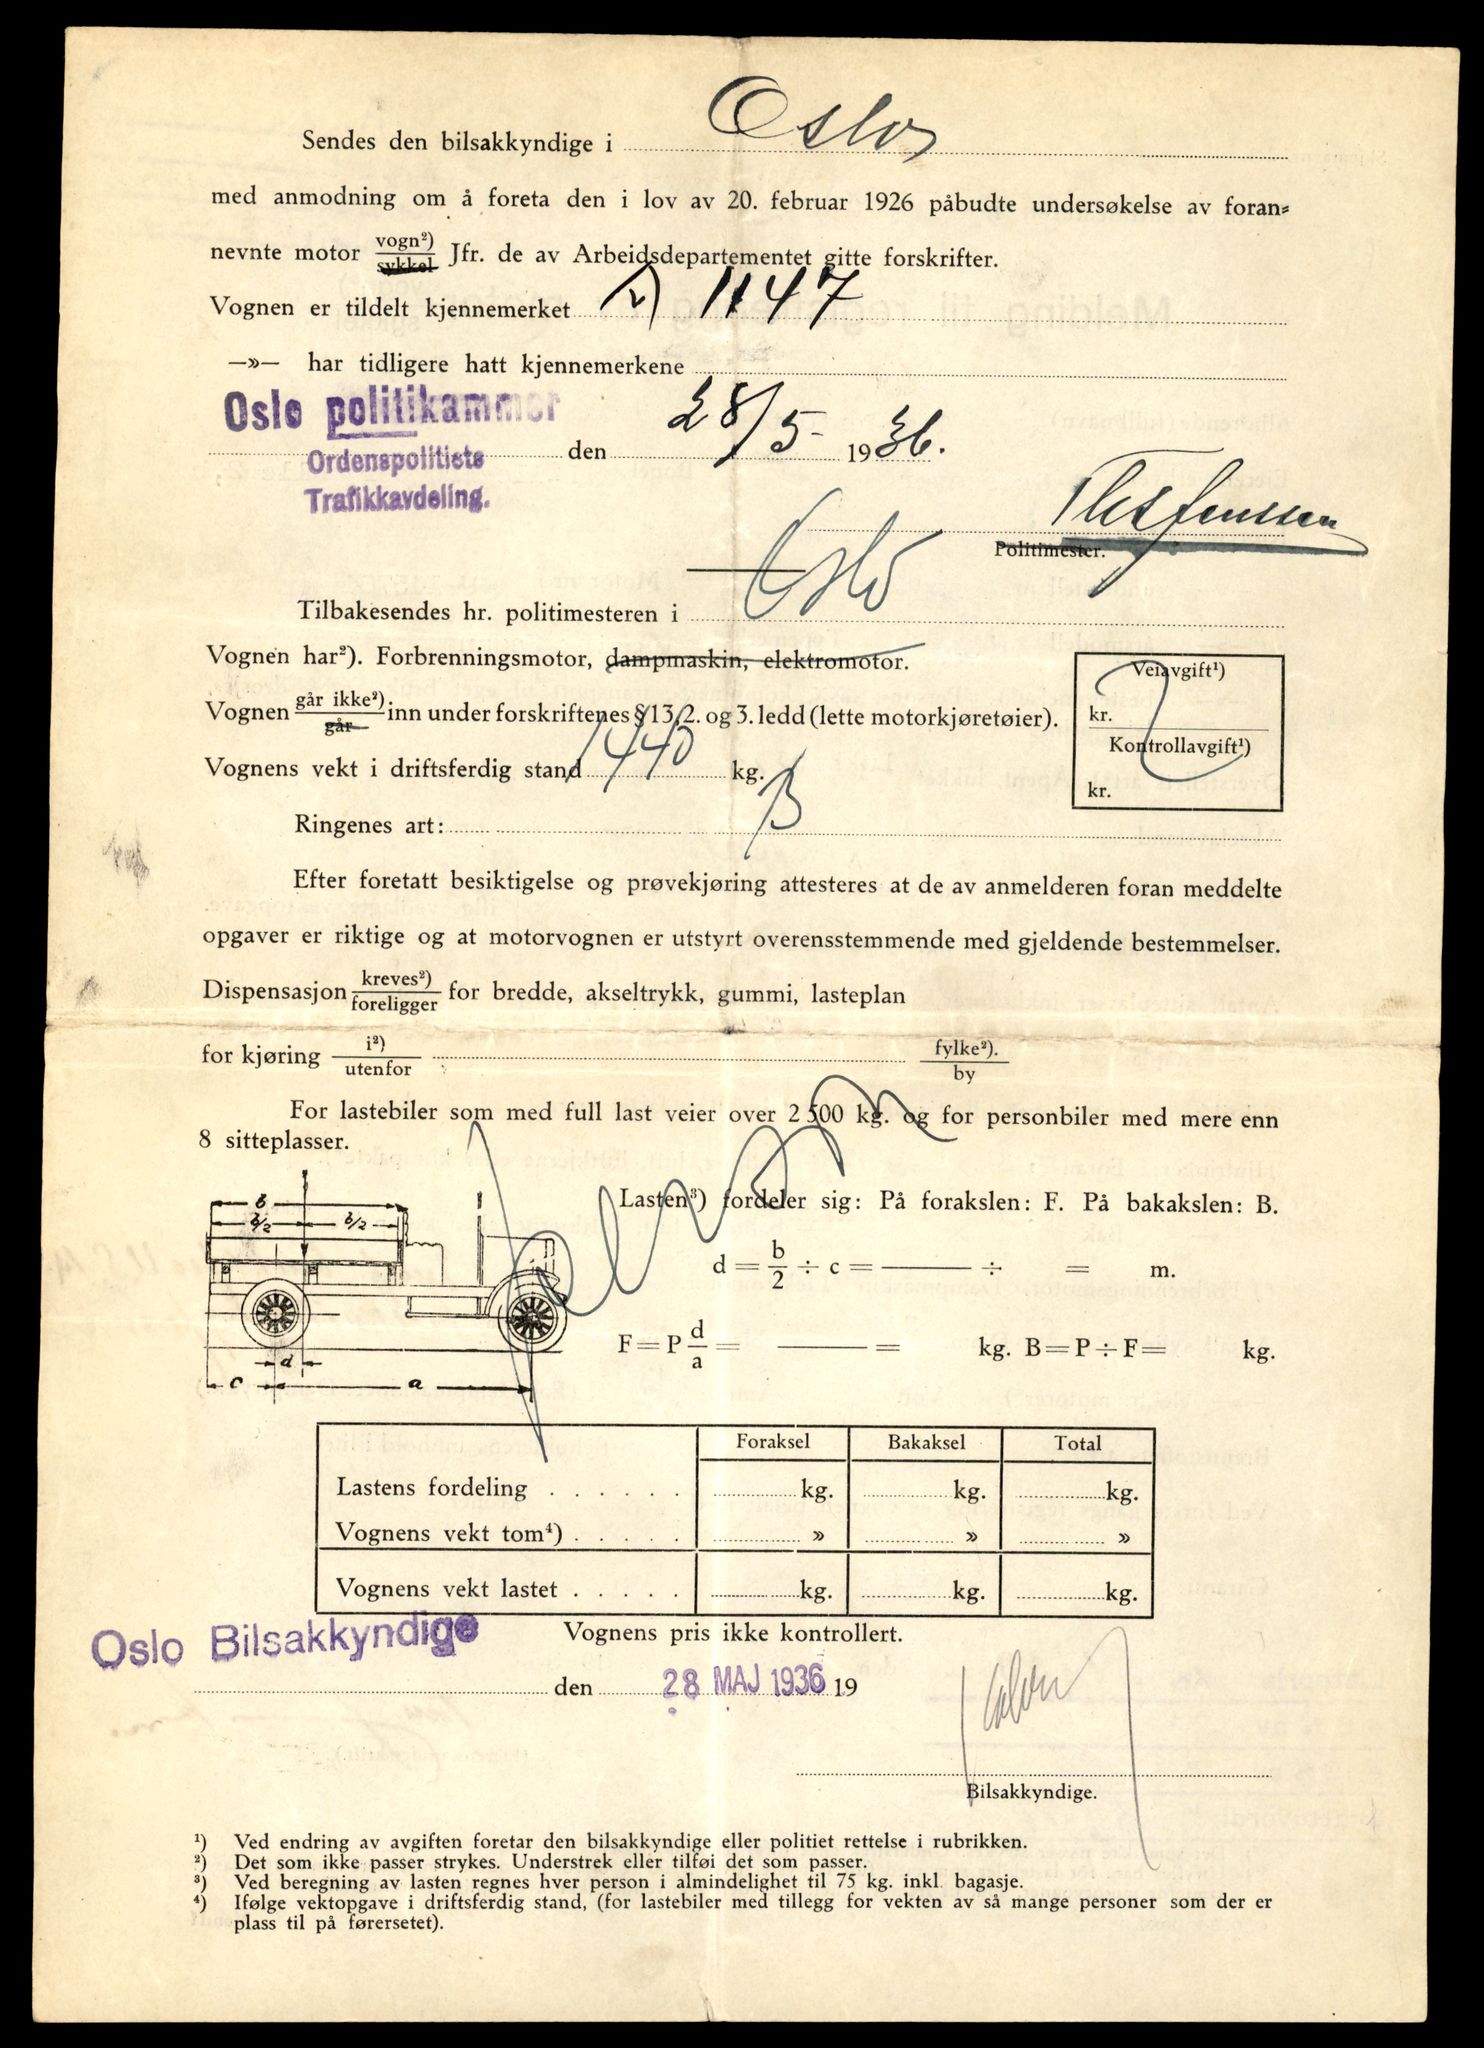 Sendes den bilsakkyndige i Oslo
med anmodning om å foreta den i lov av 20. februar 1926 påbudte undersøkelse av foran=
nevnte motor vogn²) sykkel Jfr. de av Arbeidsdepartementet gitte forskrifter.
Vognen er tildelt kjennemerket 1147
—»— har tidligere hatt kjennemerkene
Oslo politikammer
Ordenspolitiets
Trafikkavdeling.
den 28/5 1936.
Politimester.
Tilbakesendes hr. politimesteren i Oslo
Vognen har²). Forbrenningsmotor, dampmaskin, elektromotor.
Vognen går ikke²) går inn under forskriftenes § 13, 2. og 3. ledd (lette motorkjøretøier).
Vognens vekt i driftsferdig stand 1440 kg.
Veiavgift¹)
kr.
Kontrollavgift¹)
kr.
Ringenes art: B
Efter foretatt besiktigelse og prøvekjøring attesteres at de av anmelderen foran meddelte
opgaver er riktige og at motorvognen er utstyrt overensstemmende med gjeldende bestemmelser.
Dispensasjon kreves²) foreligger for bredde, akseltrykk, gummi, lasteplan
for kjøring i²) utenfor fylke²). by
For lastebiler som med full last veier over 2 500 kg. og for personbiler med mere enn
8 sitteplasser.
b
b/2 b/2
d
c a
Lasten³) fordeler sig: På forakslen: F. På bakakslen: B.
d = b/2 ÷ c = ——— ÷ = m.
F = P d/a = ——— = kg. B = P ÷ F = kg.
Foraksel Bakaksel Total
Lastens fordeling . . . . . . kg. kg. kg.
Vognens vekt tom⁴) . . . . . » » »
Vognens vekt lastet . . . . . kg. kg. kg.
Oslo Bilsakkyndige
Vognens pris ikke kontrollert.
den 28 MAJ 1936 19
Bilsakkyndige.
¹) Ved endring av avgiften foretar den bilsakkyndige eller politiet rettelse i rubrikken.
²) Det som ikke passer strykes. Understrek eller tilføi det som passer.
³) Ved beregning av lasten regnes hver person i almindelighet til 75 kg. inkl. bagasje.
⁴) Ifølge vektopgave i driftsferdig stand, (for lastebiler med tillegg for vekten av så mange personer som der er
plass til på førersetet).